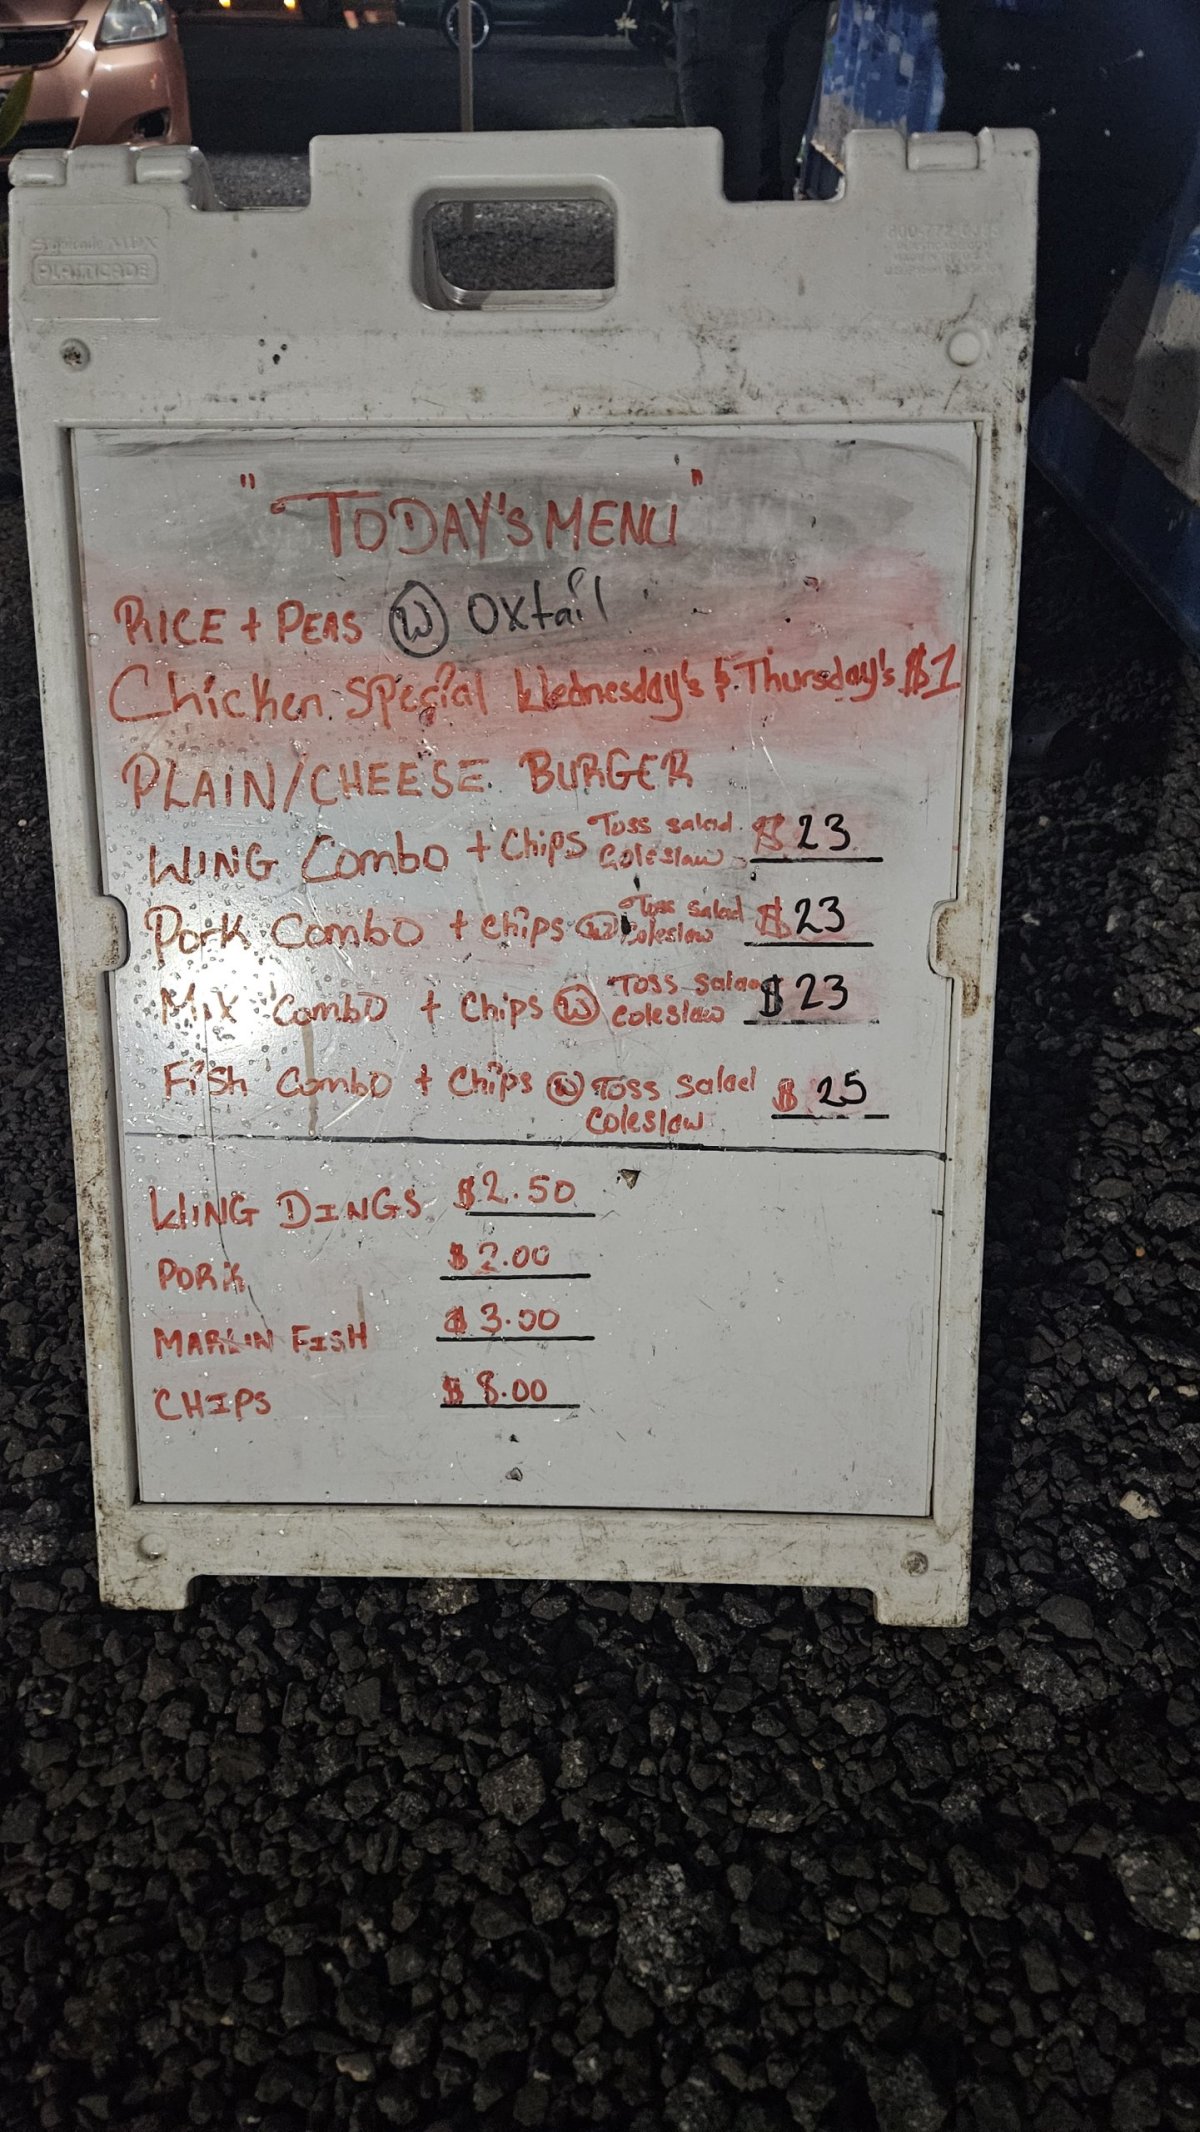 Signicade MDX
PLASTICADE
"TODAY'S MENU"
RICE + PEAS W Oxtail
Chicken Special Wednesday's & Thursday's $1
PLAIN/CHEESE BURGER
WING Combo + Chips Toss salad Coleslaw $23
Pork Combo + Chips W Toss salad Coleslaw $23
Mix Combo + Chips W Toss Salad Coleslaw $23
Fish Combo + Chips W Toss Salad Coleslaw $25
WING DINGS $2.50
PORK $2.00
MARLIN FISH $3.00
CHIPS $8.00